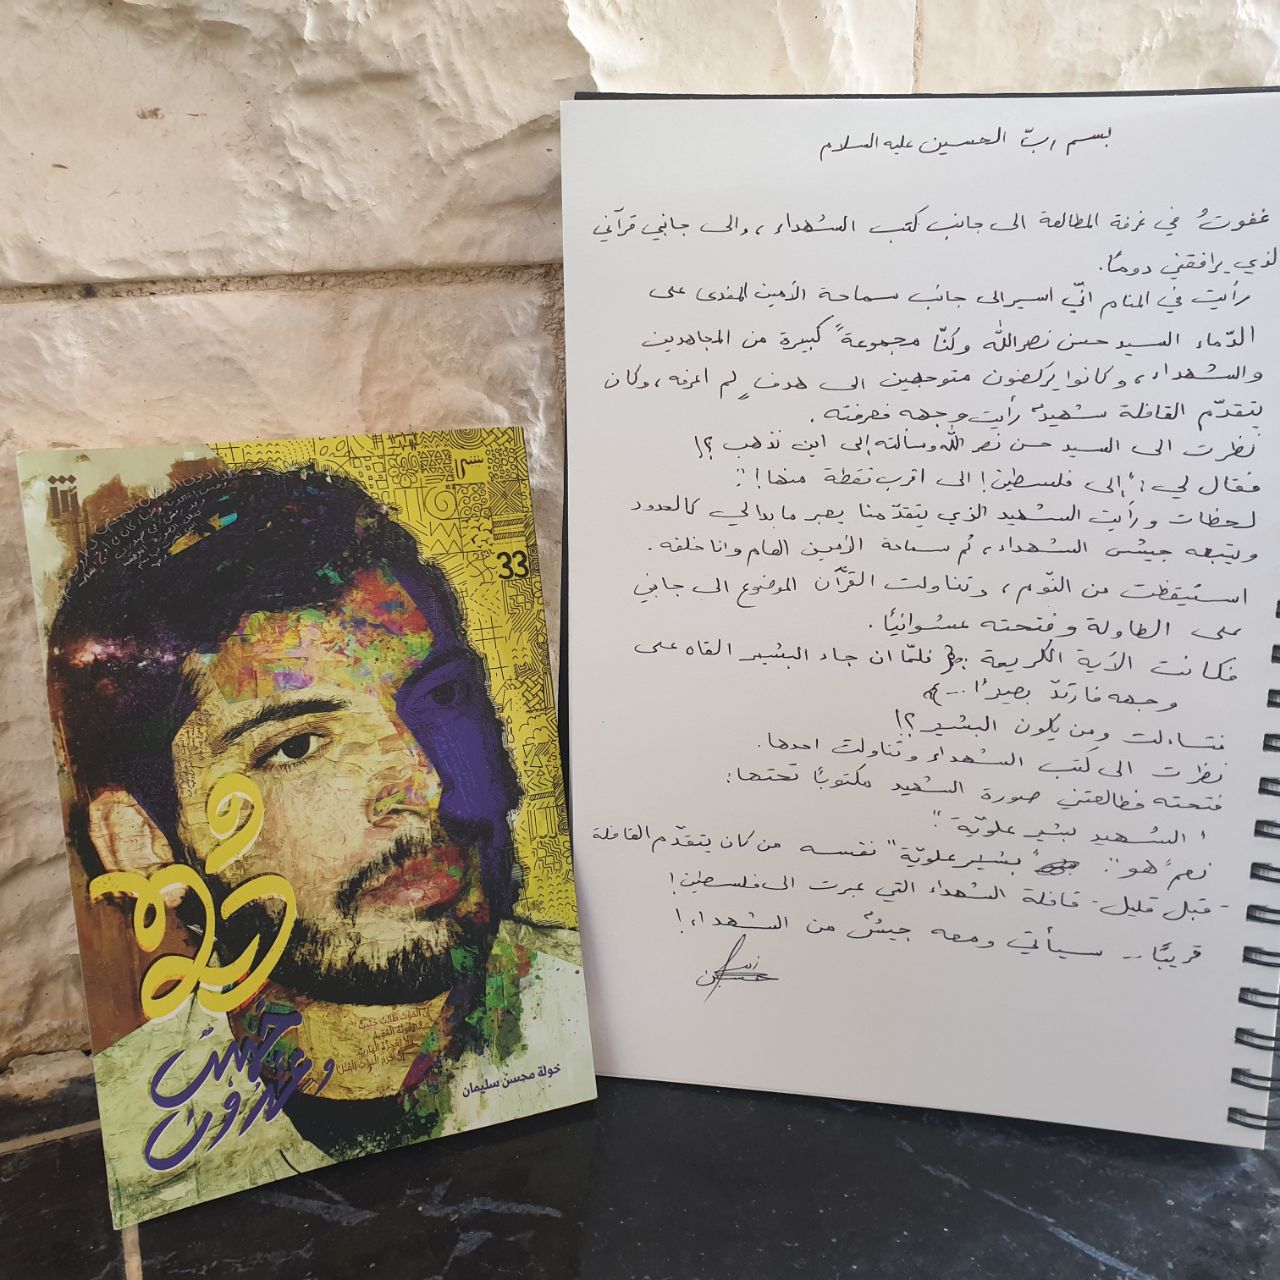 بسم ربّ الحسين عليه السلام
غفوتُ في غرفة المطالعة الى جانب كتب الشهداء، والى جانبي قرآني
لذي يرافقني دومًا.
رأيت في المنام انّي اسير الى جانب سماحة الأمين المفدى على
الدّماء السيد حسن نصرالله وكنّا مجموعةً كبيرة من المجاهدين
والشهداء، وكانوا يركضون متوجهين الى هدفٍ لم اعرفه، وكان
يتقدّم القافلة شهيدٌ رأيت وجهه فعرفته.
نظرت الى السيد حسن نصر الله وسألته إلى اين نذهب؟!
فقال لي: "إلى فلسطين! الى اقرب نقطة منها!".
لحظات ورأيت الشهيد الذي يتقدّمنا يعبر ما بدالي كالحدود
ويتبعه جيش الشهداء، ثم سماحة الأمين العام وانا خلفه.
استيقظت من النّوم، وتناولت القرآن الموضوع الى جانبي
على الطاولة وفتحته عشوائيًا.
فكانت الآية الكريمة: ﴿ فلمّا ان جاء البشير القاه على
وجهه فارتدّ بصيرًا... ﴾
فتساءلت ومن يكون البشير؟!
نظرت الى كتب الشهداء وتناولت احدها.
فتحته فطالعتني صورة الشهيد مكتوبًا تحتها:
"الشهيد بشير علويّة".
نعم "هو": "بشير علويّة" نفسه من كان يتقدّم القافلة
- قبل قليل - قافلة الشهداء التي عبرت الى فلسطين!
قريبًا.. سيأتي ومعه جيشٌ من الشهداء!
33
خولة محسن سليمان